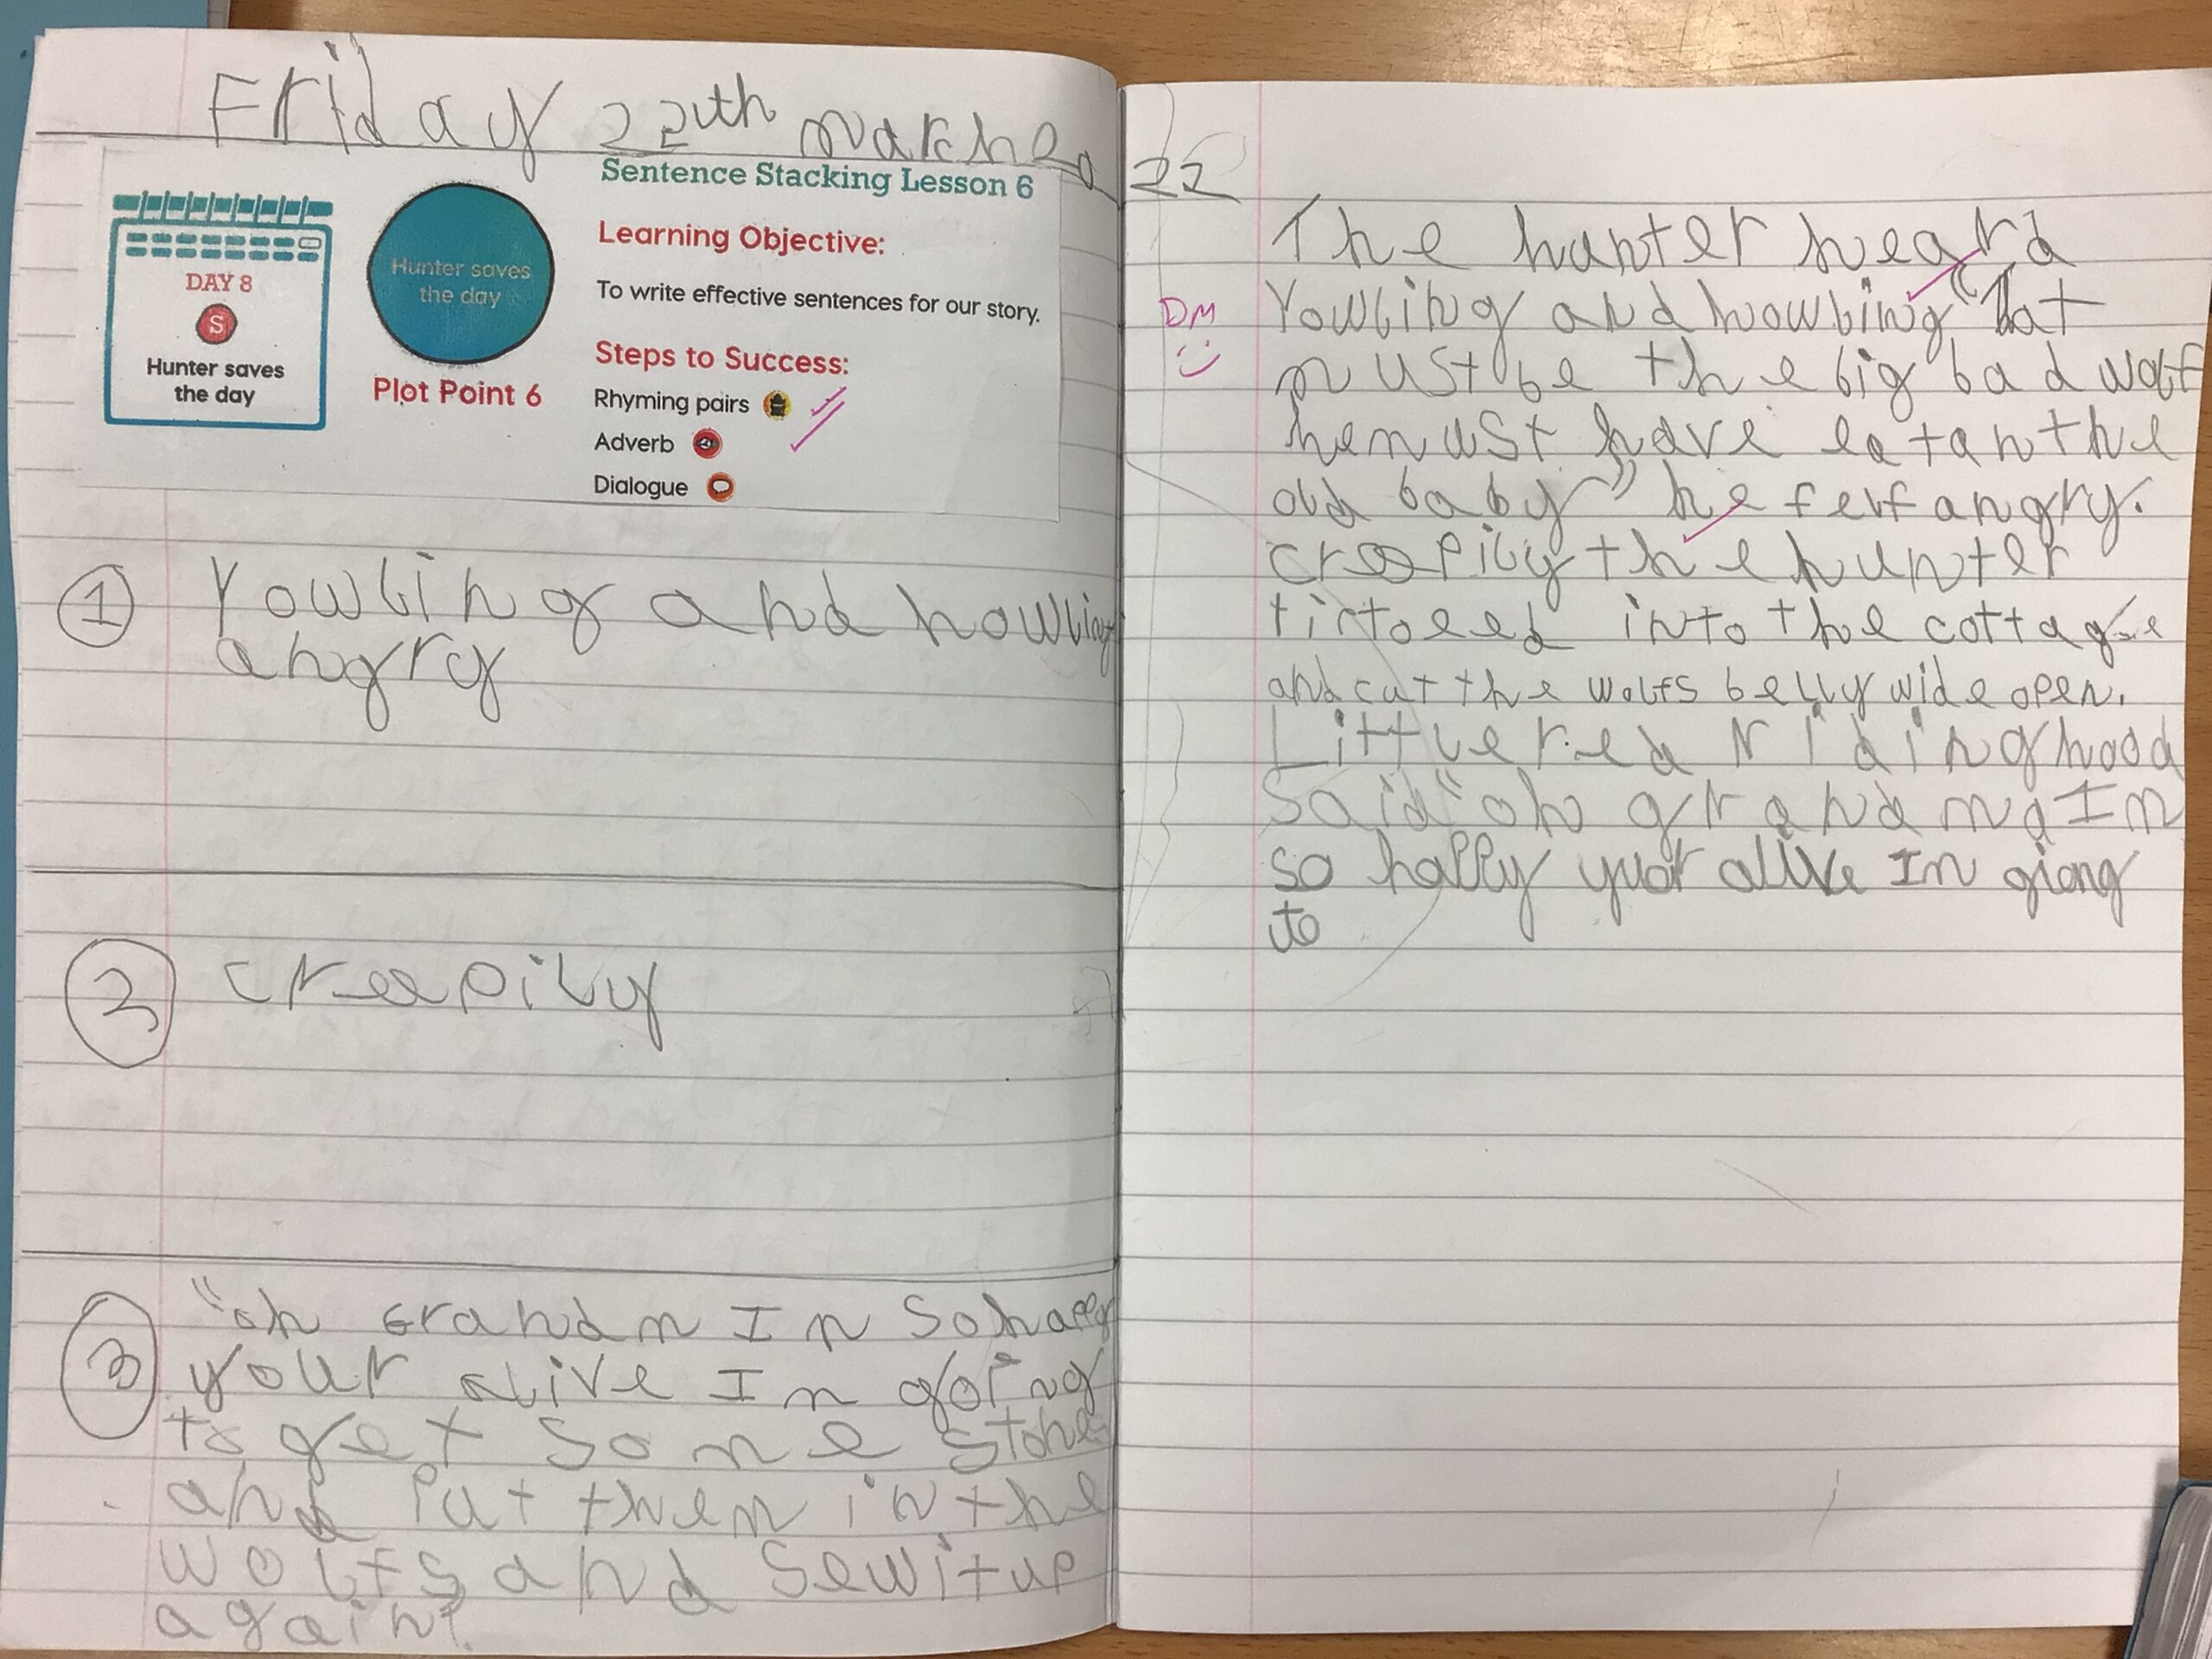 Friday 22th march 2022
Sentence Stacking Lesson 6
DAY 8
S
Hunter saves
the day
Hunter saves
the day
Plot Point 6
Learning Objective:
To write effective sentences for our story.
Steps to Success:
Rhyming pairs
Adverb
Dialogue
1 Yowling and howling
angry
2 creepily
3 "oh Grandm Im so happy
your alive Im going
to get some stones
and Put them in the
wolfs and sew it up
again!
The hunter heard
DM
Yowling and howling "hat
must be the big bad wolf
he must have eatan the
old baby" he felf angry.
creepily the hunter
tiptoeed into the cottage
and cut the wolfs belly wide open.
Little red riding hood
Said "oh grandma Im
so happy yuor alive Im giong
to